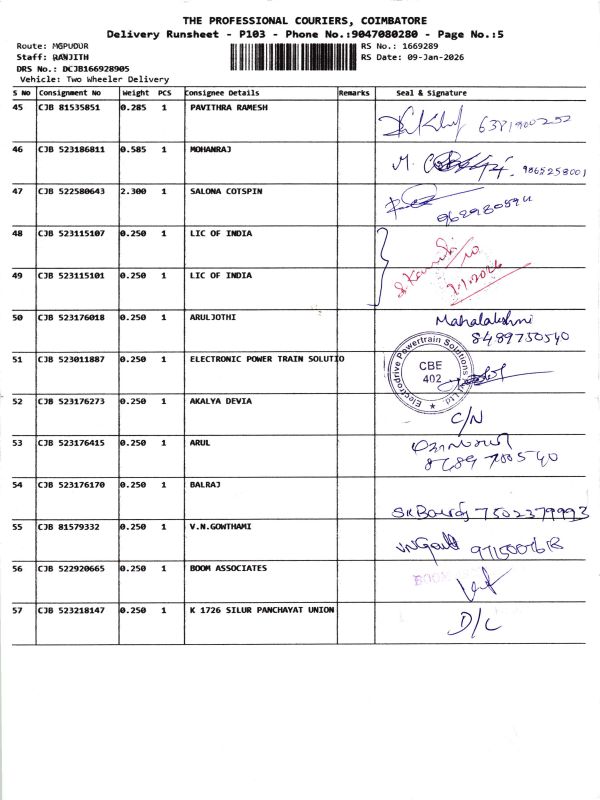 THE PROFESSIONAL COURIERS, COIMBATORE
Delivery Runsheet - P103 - Phone No.:9047080280 - Page No.:5
Route: MGPUDUR
RS No.: 1669289
Staff: RANJITH
RS Date: 09-Jan-2026
DRS No.: DCJB166928905
Vehicle: Two Wheeler Delivery
S No Consignment No Weight PCS Consignee Details Remarks Seal & Signature
45 CJB 81535851 0.285 1 PAVITHRA RAMESH
6381900252
46 CJB 523186811 0.585 1 MOHANRAJ
M. 9865258001
47 CJB 522580643 2.300 1 SALONA COTSPIN
48 CJB 523115107 0.250 1 LIC OF INDIA
49 CJB 523115101 0.250 1 LIC OF INDIA
50 CJB 523176018 0.250 1 ARULJOTHI
Mahalakshmi
8489750540
51 CJB 523011887 0.250 1 ELECTRONIC POWER TRAIN SOLUTIO
Electrodrive Powertrain Solutions
CBE
402
52 CJB 523176273 0.250 1 AKALYA DEVIA
C/N
53 CJB 523176415 0.250 1 ARUL
54 CJB 523176170 0.250 1 BALRAJ
7502379993
55 CJB 81579332 0.250 1 V.N.GOWTHAMI
56 CJB 522920665 0.250 1 BOOM ASSOCIATES
BOOM
57 CJB 523218147 0.250 1 K 1726 SILUR PANCHAYAT UNION
D/L